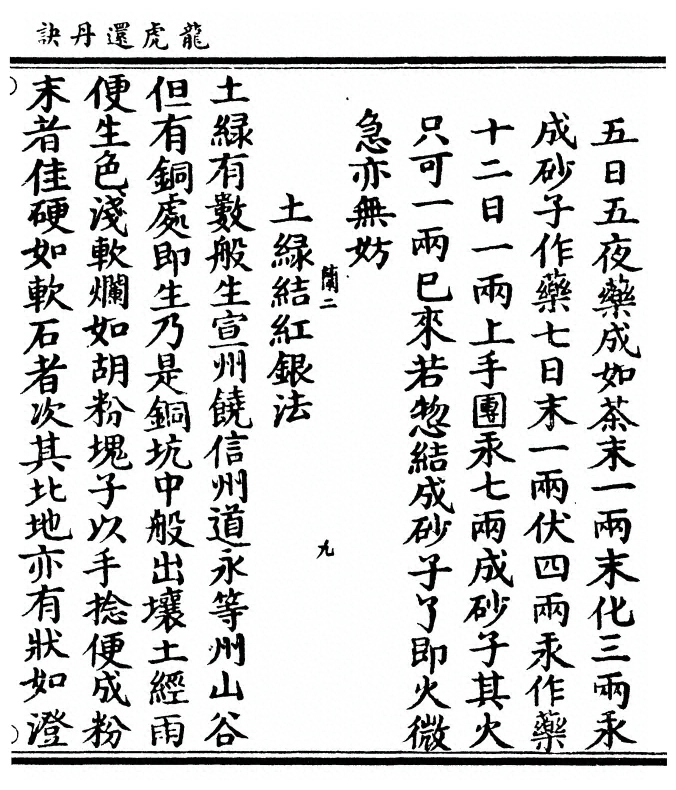 龍虎還丹訣
五日五夜藥成如茶末一兩末化三兩汞
成砂子作藥七日末一兩伏四兩汞作藥
十二日一兩上手團汞七兩成砂子其火
只可一兩已來若惣結成砂子了即火微
急亦無妨
蘭二
九
土緑結紅銀法
土緑有數般生宣州饒信州道永等州山谷
但有銅處即生乃是銅坑中般出壤土經雨
便生色淺軟爛如胡粉塊子以手捻便成粉
末者佳硬如軟石者次其北地亦有狀如澄